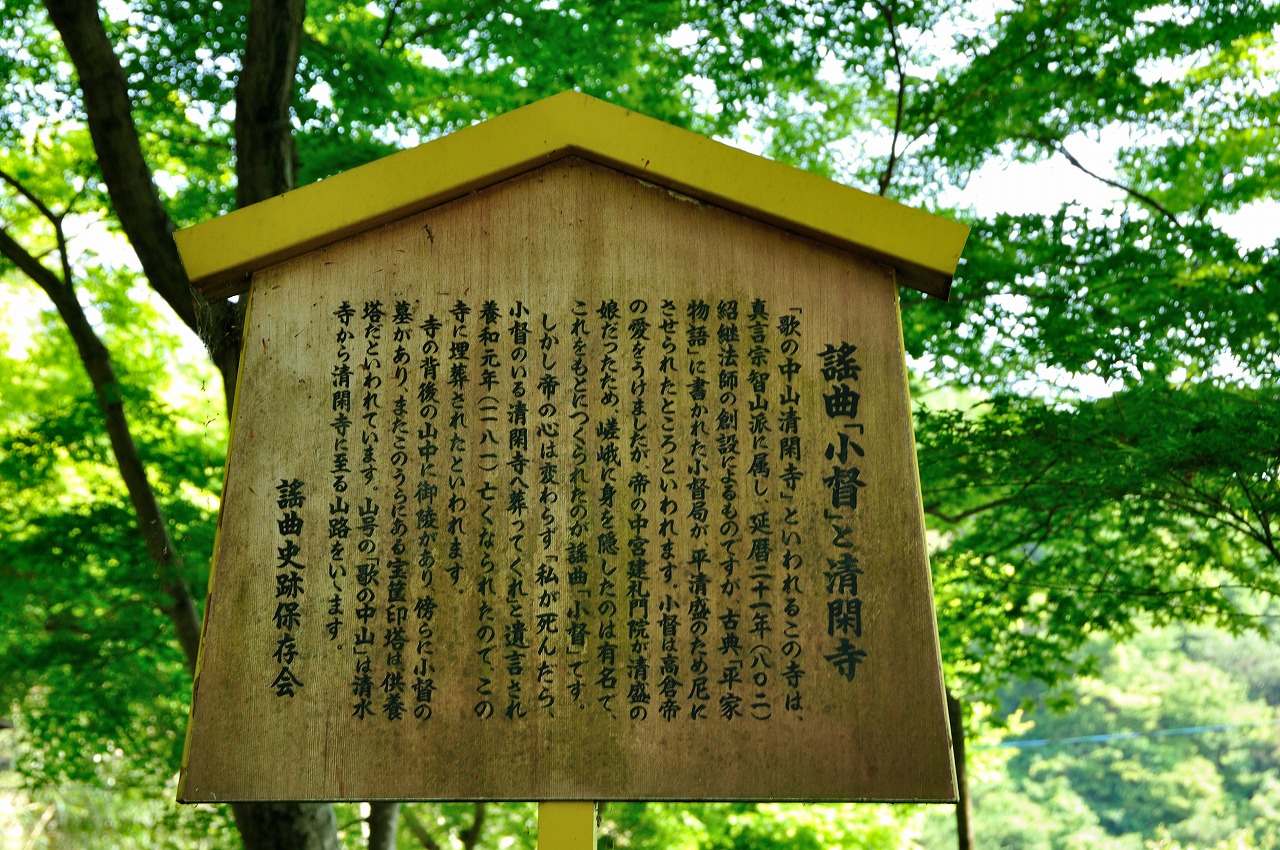 謡曲「小督」と清閑寺
「歌の中山清閑寺」といわれるこの寺は、
真言宗智山派に属し、延暦二十一年（八〇二）
紹継法師の創設によるものですが、古典「平家
物語」に書かれた小督局が、平清盛のため尼に
させられたところといわれます。小督は高倉帝
の愛をうけましたが、帝の中宮建礼門院が清盛の
娘だったため、嵯峨に身を隠したのは有名で、
これをもとにつくられたのが謡曲「小督」です。
しかし帝の心は変わらず「私が死んだら、
小督のいる清閑寺へ葬ってくれと遺言され
養和元年（一一八一）亡くなられたので、この
寺に埋葬されたといわれます。
寺の背後の山中に御陵があり、傍らに小督の
墓があり、またこのうらにある宝筐印塔は、供養
塔だといわれています。山号の「歌の中山」は清水
寺から清閑寺に至る山路をいいます。
謡曲史跡保存会